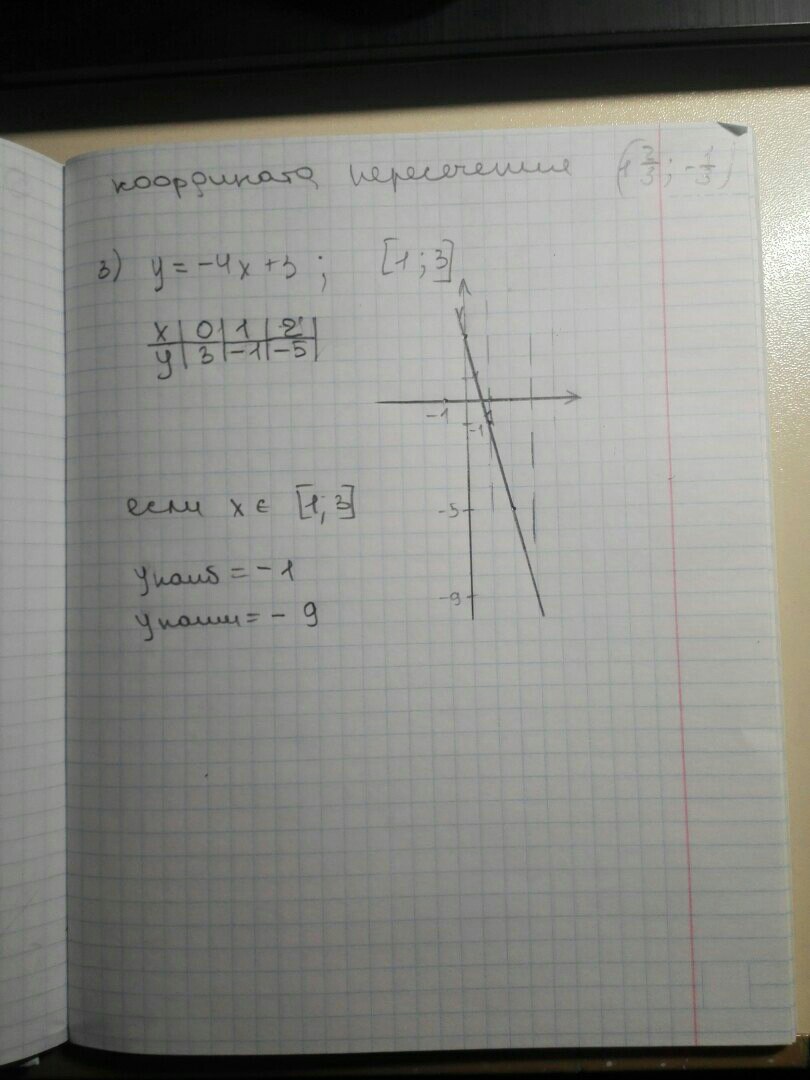 координата пересечения (1 2/3; -1/3)
3) y = -4x + 3; [1; 3]
x | 0 | 1 | 2 |
y | 3 | -1 | -5 |
-1
-1
-5
-9
если x ∈ [1; 3]
y наиб = -1
y наим = -9